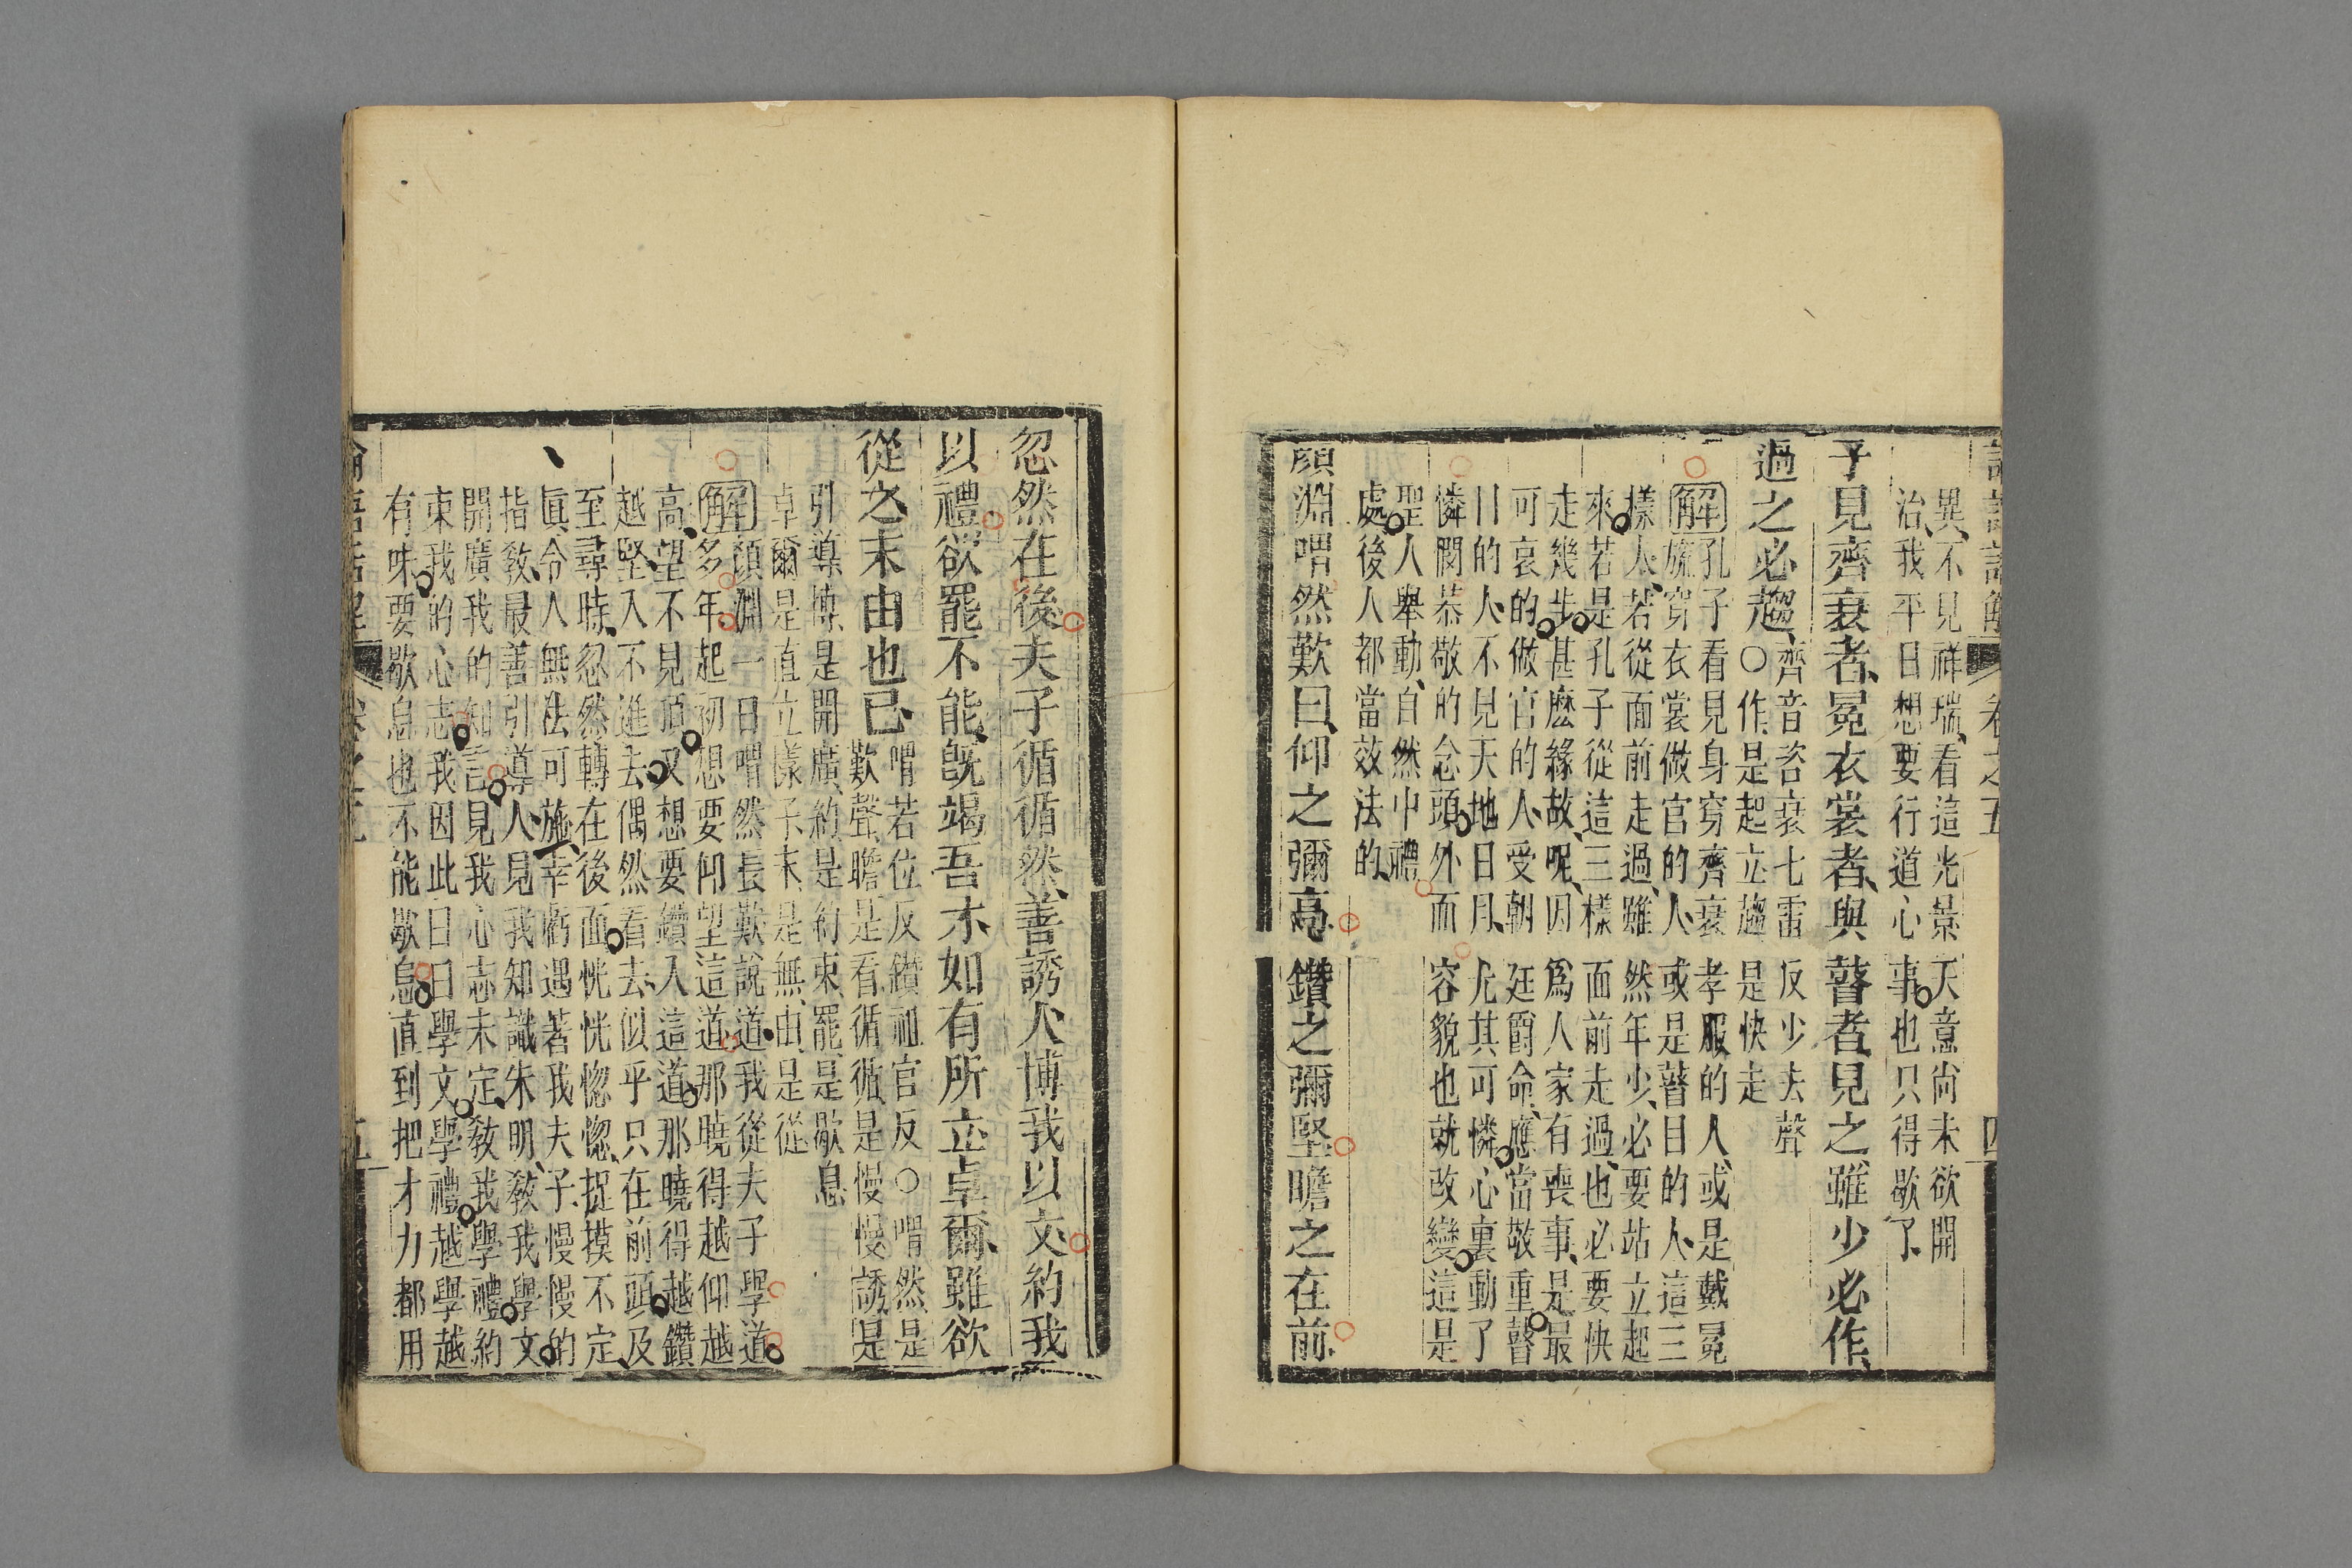 語話解 卷之五 四
異、不見祥瑞、看這光景、天意尚未欲開
治、我平日想要行道心事也只得歇了、
子見齊衰者、冕衣裳者、與瞽者、見之、雖少必作、
過之必趨、齊音咨衰七雷反少去聲
○作、是起立趨是快走
解 孔子看見身穿齊衰孝服的人、或是戴冕
旒穿衣裳做官的人、或是瞽目的人、這三
樣人、若從面前走過、雖然年少、必要站立起
來若是孔子從這三樣面前走過、也必要快
走幾步、甚麽緣故、呢、因爲人家有喪事、是最
可哀的、做官的人、受朝廷爵命、應當敬重瞽
目的人、不見天地日月、尤其可憐心裏動了
憐憫恭敬的念頭、外而容貌也就改變、這是
聖人舉動、自然中禮
處、後人都當效法的、
顔淵喟然歎曰、仰之彌高、鑽之彌堅瞻之在前、
忽然在後夫子循循然、善誘人、博我以文、約我
以禮、欲罷不能、旣竭吾才、如有所立卓爾、雖欲
從之、末由也已、喟若位反鑽祖官反○喟然、是
歎聲、瞻是看、循循、是慢慢誘是
引導博、是開廣、約、是約束、罷、是歇息
卓爾是直立樣子末、是無、由、是從
解 顔淵一日喟然長歎說道、我從夫子學道
多年、起初想要仰望這道、那曉得越仰越
高、望不見頂、又想要鑽入這道、那曉得越鑽
越堅、入不進去、偶然看去、似乎只在前頭、及
至尋時、忽然轉在後面、恍恍惚惚、捉摸不定、
眞、令人無法可施、幸虧遇著我夫子、慢慢的
指敎、最善引導人、見我知識未明、敎我學文
開廣我的知言、見我心志未定、敎我學禮約
束我的心志、我因此日日學文學禮越學越
有味要歇息也不能歇息、直到把才力都用
論語話解 卷之五 五